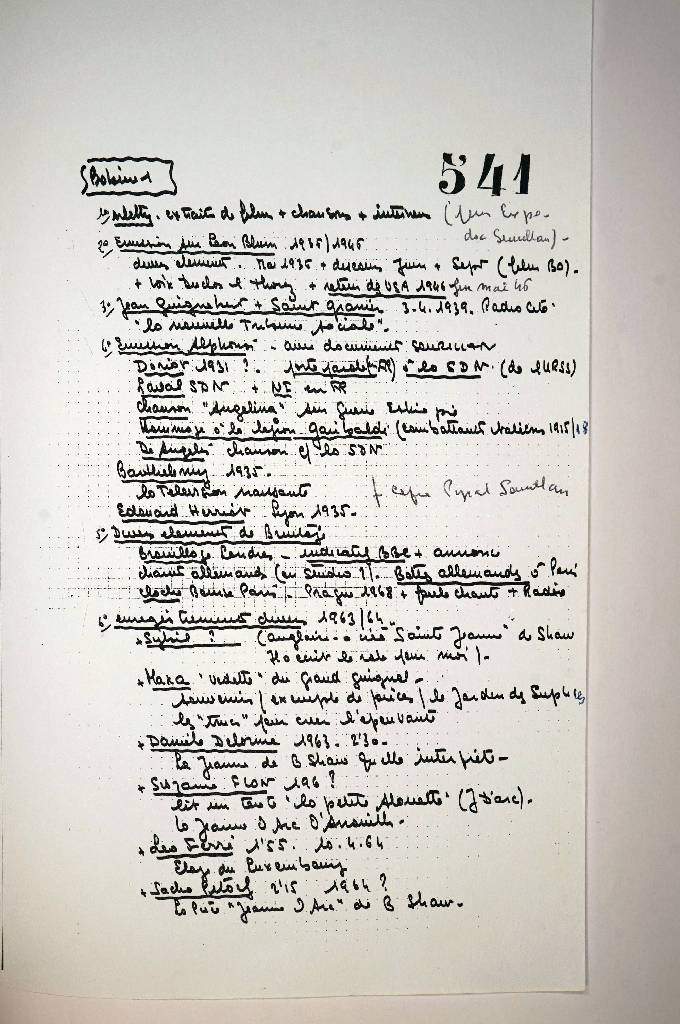 541
Bobine 1
1° Arletty. extraits de films + chansons + interview (pour Expo.
doc Sevillan).
2° Emission sur Leon Blum 1935/1945
divers element. Mai 1935 + discours Juin + Sept (film BO).
+ voix Duclos et Thorez + retour de USA 1946 fin mai 46
3° Jean Guignebert + Saint Granier 3.4.1939. Radio Cité
"la nouvelle Tribune sociale".
4° Emission Alphonse - avec document
Doriot 1931 ? à la SDN. (de l'URSS)
Laval SDN + en FR
chanson "Angelina" sur Guerre Ethiopie
Hommage à la legion Garibaldi (combattants italiens 1915/18
De Angelis chanson c/ la SDN
Barthelemy 1935.
la Television naissante
copie Pyral Sevillan
Edouard Herriot Lyon 1935.
5° Divers element de Bruitage
Brouillage Londres - indicatif BBC + annonce
chants allemands (en studio ?). Bottes allemandes à Paris
cloche Bourse Paris. Prague 1968 + foule chants + Radio
6° enregistrement divers 1963/64.
+ Sybil ? (anglaise - a créé "Sainte Jeanne" de Shaw
Il a écrit le role pour moi).
+ Maxa "vedette" du Grand Guignol.
souvenirs / exemple de pièces / le Jardin des Supplices
les "trucs" pour créer l'épouvante
+ Danièle Delorme 1963. 2'30.
La Jeanne de B Shaw qu'elle interprète.
+ Suzanne FLON 196 ?
lit un texte "la petite Alouette" (J D'arc).
la Jeanne D Arc D'Anouilh.
+ Léo Ferré 1'55. 10.4.64
Eloge du Luxembourg
+ Sacha Pitoëff 2'15 1964 ?
La Pièce "Jeanne D Arc" de B Shaw.